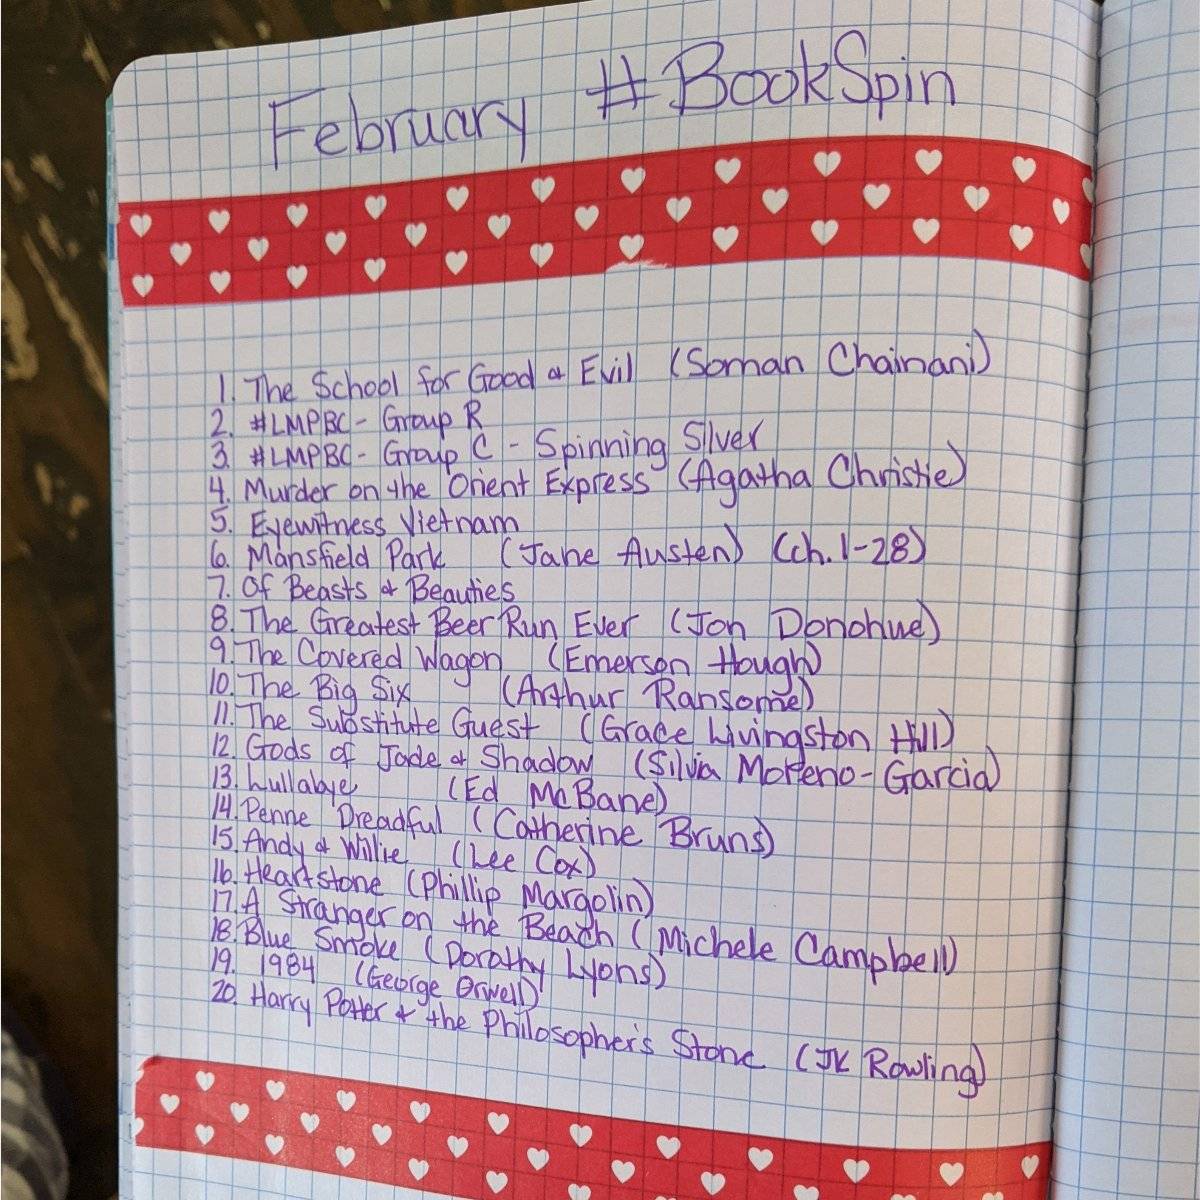 February #BookSpin
1. The School for Good & Evil (Soman Chainani)
2. #LMPBC - Group R
3. #LMPBC - Group C - Spinning Silver
4. Murder on the Orient Express (Agatha Christie)
5. Eyewitness Vietnam
6. Mansfield Park (Jane Austen) (ch. 1-28)
7. Of Beasts & Beauties
8. The Greatest Beer Run Ever (Jon Donohue)
9. The Covered Wagon (Emerson Hough)
10. The Big Six (Arthur Ransome)
11. The Substitute Guest (Grace Livingston Hill)
12. Gods of Jade & Shadow (Silvia Moreno-Garcia)
13. Lullabye (Ed McBane)
14. Penne Dreadful (Catherine Bruns)
15. Andy & Willie (Lee Cox)
16. Heartstone (Phillip Margolin)
17. A Stranger on the Beach (Michele Campbell)
18. Blue Smoke (Dorothy Lyons)
19. 1984 (George Orwell)
20. Harry Potter & the Philosopher's Stone (JK Rowling)